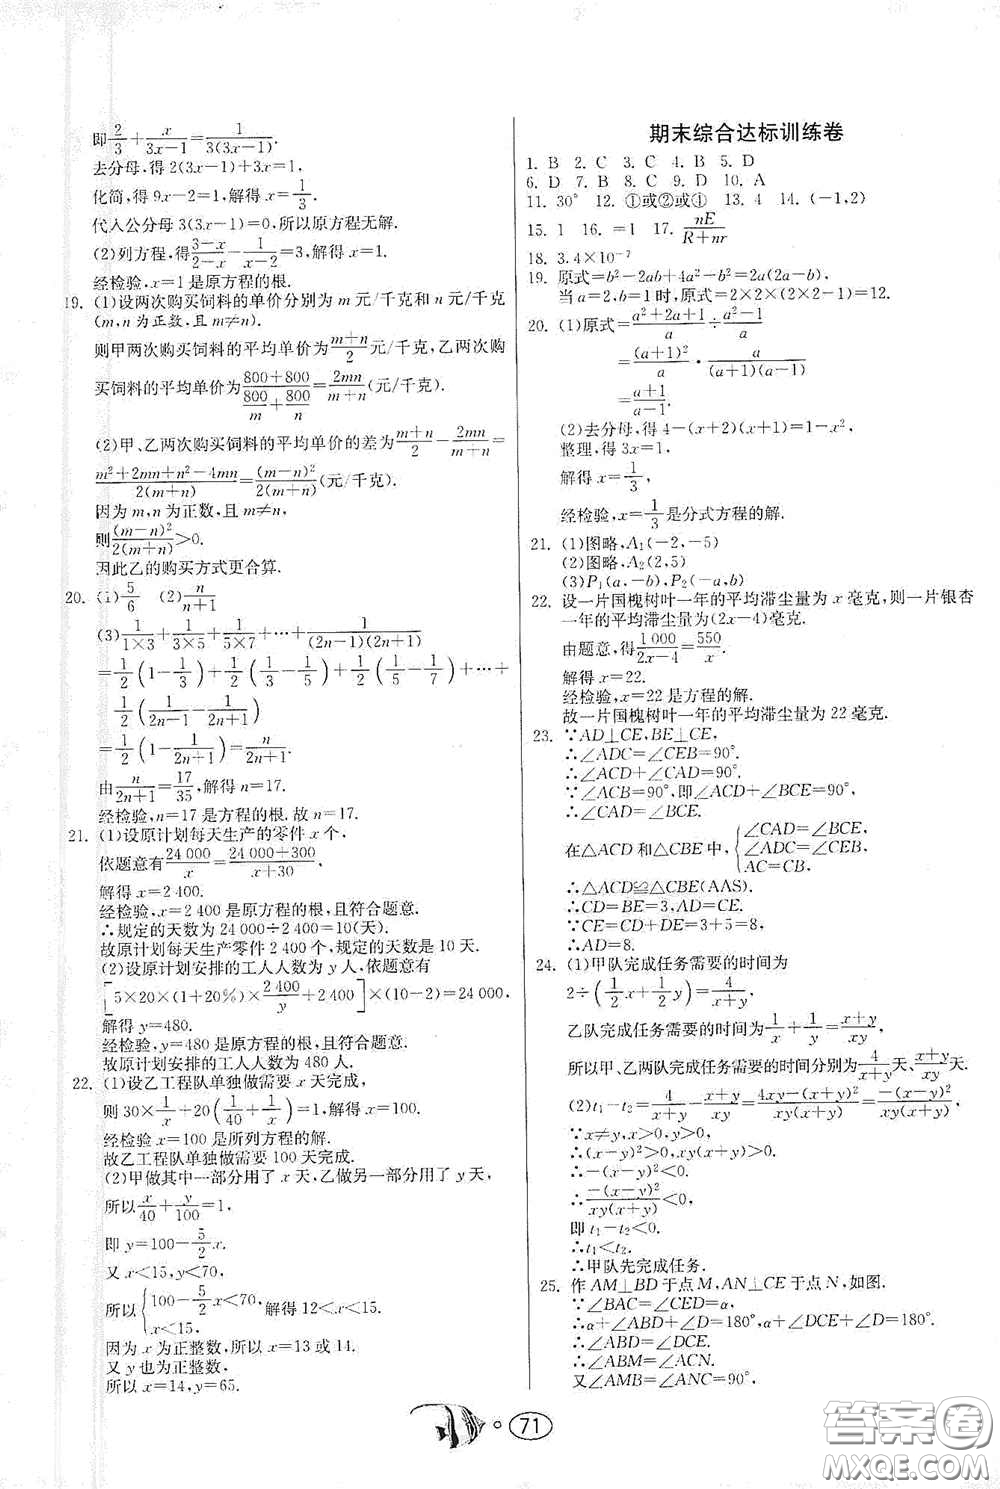 即2/3+x/(3x-1)=1/(3(3x-1))
去分母,得2(3x-1)+3x=1,
化简,得9x-2=1,解得x=1/3.
代入公分母3(3x-1)=0,所以原方程无解.
(2)列方程,得(3-x)/(2-x)-1/(x-2)=3,解得x=1.
经检验,x=1是原方程的根.
19. (1)设两次购买饲料的单价分别为m元/千克和n元/千克
(m,n为正数,且m≠n).
则甲两次购买饲料的平均单价为(m+n)/2元/千克,乙两次购
买饲料的平均单价为(800+800)/(800/m+800/n)=2mn/(m+n)(元/千克).
(2)甲、乙两次购买饲料的平均单价的差为(m+n)/2-2mn/(m+n)=
(m²+2mn+n²-4mn)/(2(m+n))=(m-n)²/(2(m+n))(元/千克).
因为m,n为正数,且m≠n,
则(m-n)²/(2(m+n))>0.
因此乙的购买方式更合算.
20. (1)5/6 (2)n/(n+1)
(3)1/(1×3)+1/(3×5)+1/(5×7)+…+1/((2n-1)(2n+1))
=1/2(1-1/3)+1/2(1/3-1/5)+1/2(1/5-1/7)+…+
1/2(1/(2n-1)-1/(2n+1))
=1/2(1-1/(2n+1))=n/(2n+1).
由n/(2n+1)=17/35,解得n=17.
经检验,n=17是方程的根.故n=17.
21. (1)设原计划每天生产的零件x个,
依题意有24 000/x=(24 000+300)/(x+30),
解得x=2 400.
经检验,x=2 400是原方程的根,且符合题意.
∴规定的天数为24 000÷2 400=10(天).
故原计划每天生产零件2 400个,规定的天数是10天.
(2)设原计划安排的工人人数为y人,依题意有
[5×20×(1+20%)×2 400/y+2 400]×(10-2)=24 000,
解得y=480.
经检验,y=480是原方程的根,且符合题意.
故原计划安排的工人人数为480人.
22. (1)设乙工程队单独做需要x天完成,
则30×1/x+20(1/40+1/x)=1,解得x=100.
经检验x=100是所列方程的解.
故乙工程队单独做需要100天完成.
(2)甲做其中一部分用了x天,乙做另一部分用了y天,
所以x/40+y/100=1,
即y=100-5/2x.
又x<15,y<70,
所以{100-5/2x<70, x<15,解得12<x<15.
因为x为正整数,所以x=13或14.
又y也为正整数,
所以x=14,y=65.
期末综合达标训练卷
1. B 2. C 3. C 4. B 5. D
6. D 7. B 8. C 9. D 10. A
11. 30° 12. ①或②或④ 13. 4 14. (-1,2)
15. 1 16. =1 17. nE/(R+nr)
18. 3.4×10⁻⁷
19. 原式=b²-2ab+4a²-b²=2a(2a-b),
当a=2,b=1时,原式=2×2×(2×2-1)=12.
20. (1)原式=(a²+2a+1)/a÷(a²-1)/a
=(a+1)²/a·a/((a+1)(a-1))
=(a+1)/(a-1).
(2)去分母,得4-(x+2)(x+1)=1-x²,
整理,得3x=1,
解得x=1/3,
经检验,x=1/3是分式方程的解.
21. (1)图略,A₁(-2,-5)
(2)图略,A₂(2,5)
(3)P₁(a,-b),P₂(-a,b)
22. 设一片国槐树叶一年的平均滞尘量为x毫克,则一片银杏
一年的平均滞尘量为(2x-4)毫克.
由题意,得1 000/(2x-4)=550/x.
解得x=22.
经检验,x=22是方程的解.
故一片国槐树叶一年的平均滞尘量为22毫克.
23. ∵AD⊥CE,BE⊥CE,
∴∠ADC=∠CEB=90°.
∴∠ACD+∠CAD=90°.
∵∠ACB=90°,即∠ACD+∠BCE=90°,
∴∠CAD=∠BCE.
在△ACD和△CBE中,{∠CAD=∠BCE, ∠ADC=∠CEB, AC=CB.
∴△ACD≌△CBE(AAS).
∴CD=BE=3,AD=CE.
∵CE=CD+DE=3+5=8,
∴AD=8.
24. (1)甲队完成任务需要的时间为
2÷(1/2x+1/2y)=4/(x+y),
乙队完成任务需要的时间为1/x+1/y=(x+y)/xy.
所以甲、乙两队完成任务需要的时间分别为4/(x+y)天、(x+y)/xy天.
(2)t₁-t₂=4/(x+y)-(x+y)/xy=(4xy-(x+y)²)/(xy(x+y))=-(x-y)²/(xy(x+y)),
∵x≠y,x>0,y>0,
∴(x-y)²>0,xy(x+y)>0.
∴-(x-y)²<0.
∴-(x-y)²/(xy(x+y))<0,
即t₁-t₂<0.
∴t₁<t₂.
∴甲队先完成任务.
25. 作AM⊥BD于点M,AN⊥CE于点N,如图.
∵∠BAC=∠CED=α,
∴α+∠ABD+∠D=180°,α+∠DCE+∠D=180°,
∴∠ABD=∠DCE.
∴∠ABM=∠ACN.
又∠AMB=∠ANC=90°.
71
答案圈
MXQE.COM